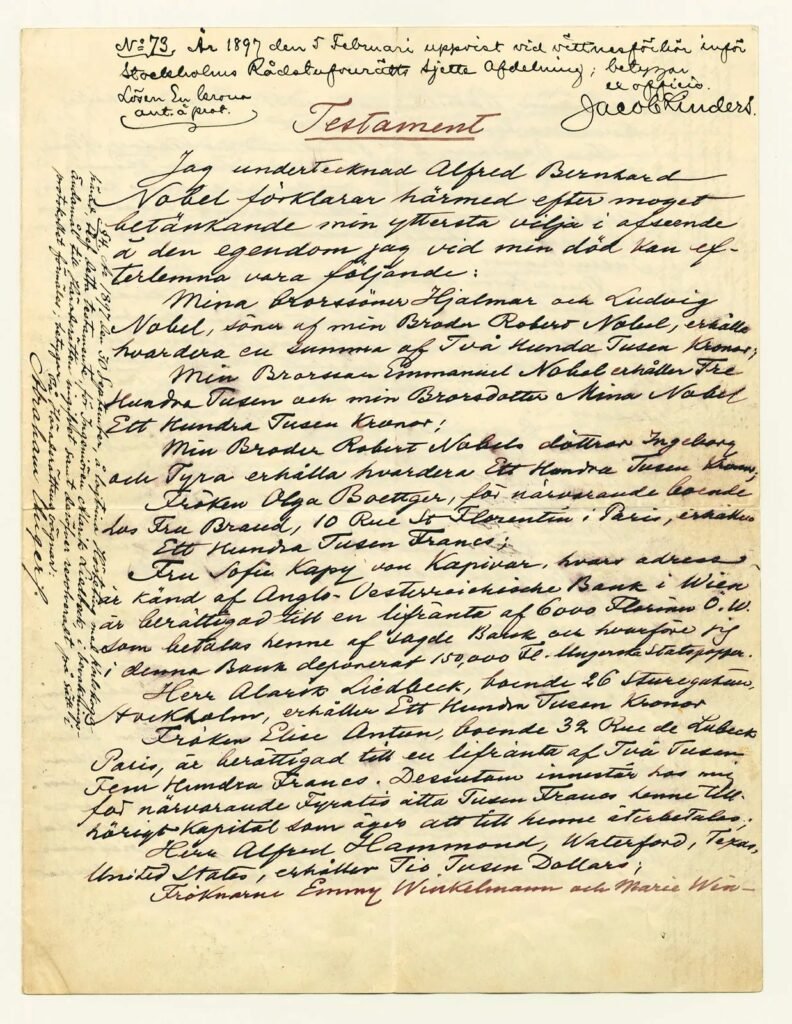 No 73. År 1897 den 5 Februari uppvist vid vittnesförhör inför
Stockholms Rådstufvurätts sjette Afdelning; betygar
ex officio.
Lösen En krona
ant. å prot.
Testament
Jag undertecknad Alfred Bernhard
Nobel förklarar härmed efter moget
betänkande min yttersta vilja i afseende
å den egendom jag vid min död kan ef-
terlemna vara följande:
Mina brorssöner Hjalmar och Ludvig
Nobel, söner af min Broder Robert Nobel, erhålla
hvardera en summa af Två Hundra Tusen Kronor;
Min Brorsson Emmanuel Nobel erhåller Tre
Hundra Tusen och min Brorsdotter Mina Nobel
Ett Hundra Tusen Kronor;
Min Broder Robert Nobels döttrar Ingeborg
och Tyra erhålla hvardera Ett Hundra Tusen Kronor;
Fröken Olga Boettger, för närvarande boende
hos Fru Brand, 10 Rue St Florentin i Paris, erhåller
Ett Hundra Tusen Francs;
Fru Sofie Kapy von Kapivar, hvars adress
är känd af Anglo-Oesterreichische Bank i Wien
är berättigad till en lifränta af 6000 Florins Ö.W.
som betalas henne af sagde Bank och hvarföre jag
i denna Bank deponerat 150,000 Fl. Ungerska Statspapper.
Herr Alarik Liedbeck, boende 26 Sturegatan,
Stockholm, erhåller Ett Hundra Tusen Kronor
Fröken Elise Antun, boende 32 Rue de Lubeck
Paris, är berättigad till en lifränta af Två Tusen
Fem Hundra Francs. Dessutom innestår hos mig
för närvarande Fyratio åtta Tusen Francs henne till-
hörigt Kapital som äger att till henne återbetalas;
Herr Alfred Hammond, Waterford, Texas,
United States, erhåller Tio Tusen Dollars;
Fröknarne Emmy Winkelmann och Marie Win-